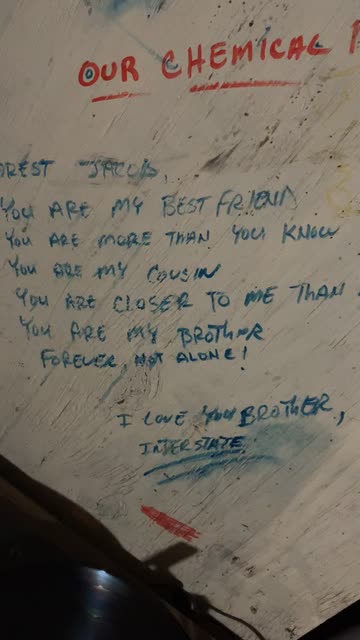 OUR CHEMICAL
DREST JACOB,
YOU ARE MY BEST FRIEND
YOU ARE MORE THAN YOU KNOW
YOU ARE MY COUSIN
YOU ARE CLOSER TO ME THAN
YOU ARE MY BROTHER
FOREVER, NOT ALONE!
I LOVE YOU BROTHER,
INTERSTATE